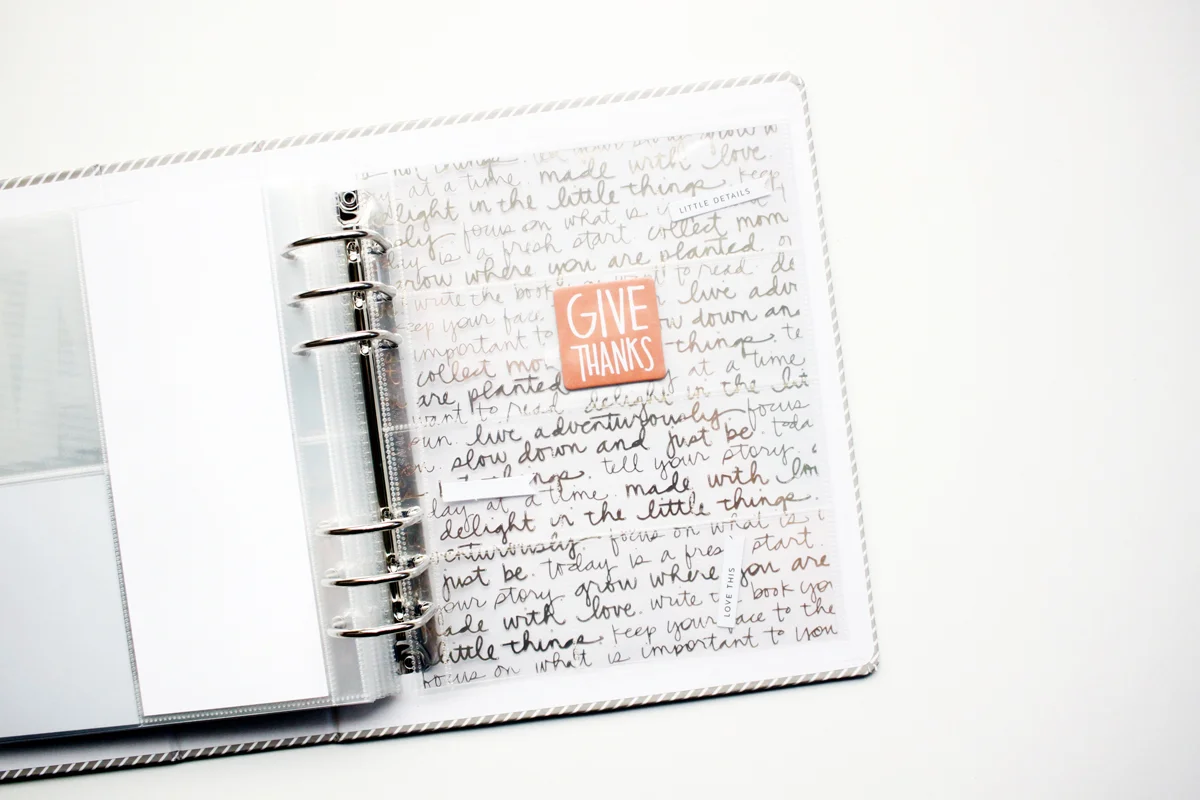 made with love.
at a time. made with love. keep
light in the little things.
LITTLE DETAILS
focus on what is
day is a fresh start. collect mom
grow where you are planted. or
to read. de
write the book
live adv
GIVE
THANKS
keep your face
slow down an
important to
things. te
collect mo
at a time
are planted
want to read. delight in the lit
live adventurously focus
slow down and just be. toda
things. tell your story.
day at a time. made with
delight in the little things.
adventurously focus on what is i
just be. today is a fresh start.
LOVE THIS
your story grow where you are
made with love. write book you
little things. keep your face to the
focus on what is important to you